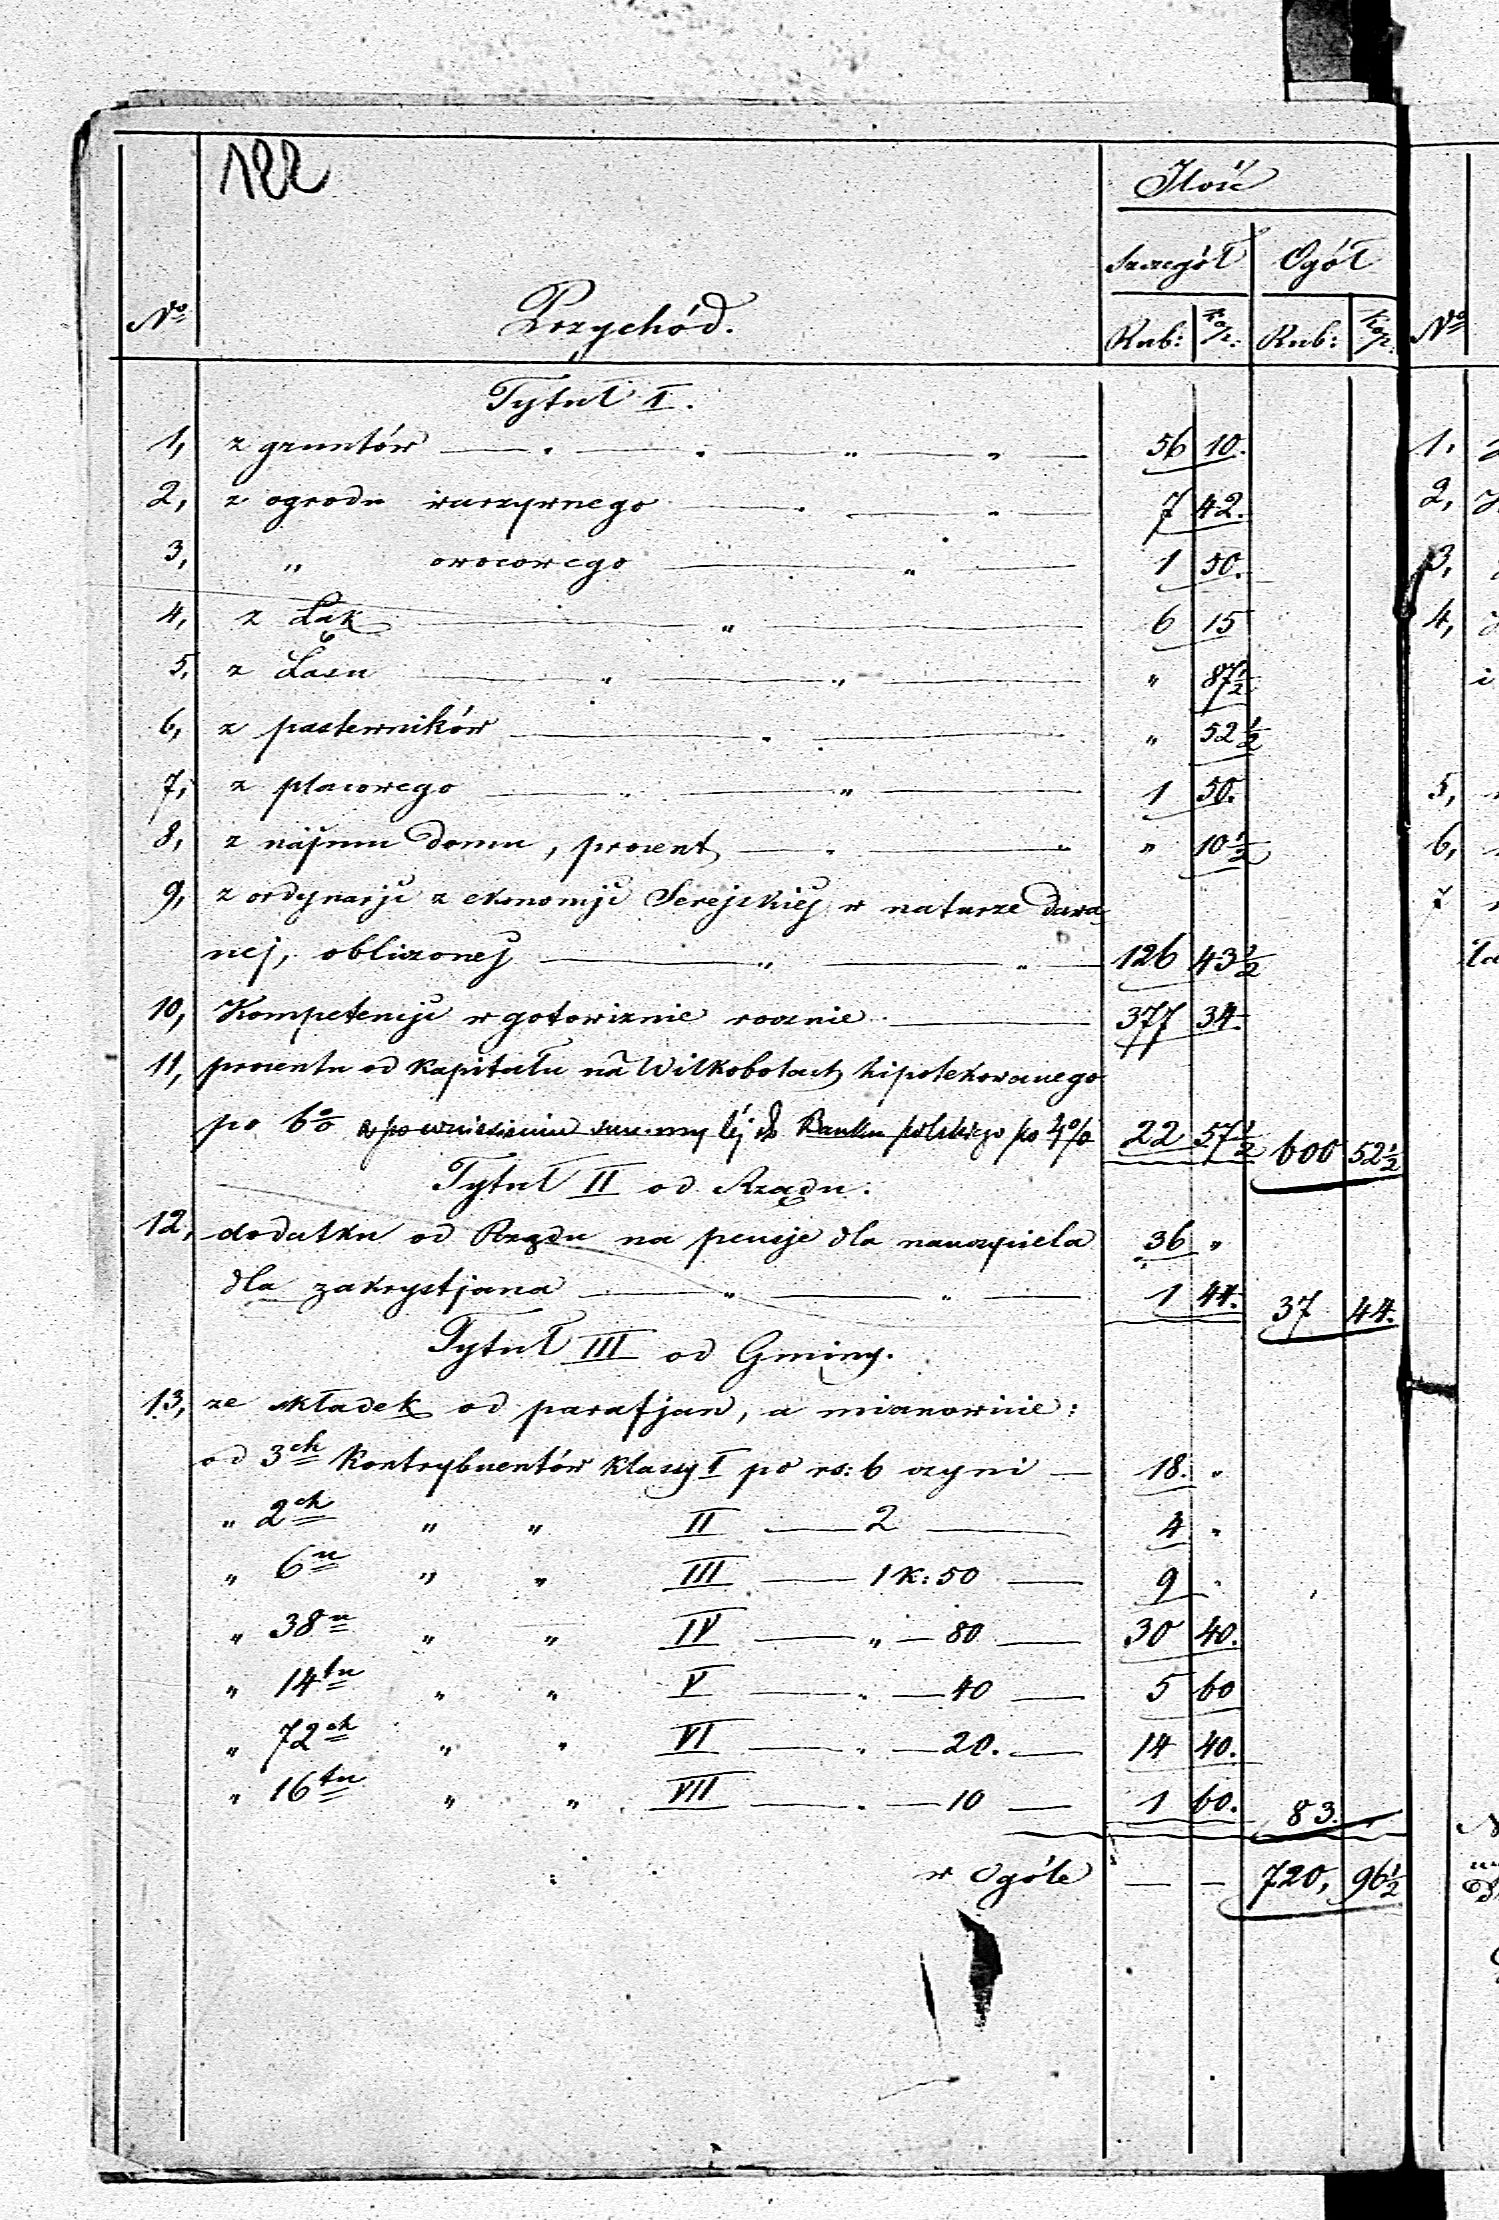 122
Ilość
Szczegół Ogół
No Przychód. Rub: Kop: Rub: Kop: No
Tytuł I.
1, z gruntów — " — " — " — " — 56 10.
2, z ogrodu warzywnego — " — " — 7 42.
3, " owocowego — " — 1 50.
4, z Łąk — " — 6 15
5, z Lasu — " — " — " 87½
6, z pasterników — " — " 52½
7, z placowego — " — " — 1 50.
8, z najmu domu, procent — " — " " 10½
9, z ordynarji z ekonomji Serejskiej w naturze dawa
nej, obliczonej — " — " — 126 43½
10, Kompetencji w gotowiznie rocznie — 377 34.
11, procentu od kapitału na Wilkobolach hipotekowanego
po 6% a po wniesieniu summy téj do Banku polskiego po 4% 22 57½ 600 52½
Tytuł II od Rządu.
12, dodatku od Rządu na pensje dla nauczyciela 36 "
dla zakrystjana — " — " — 1 44. 37 44.
Tytuł III od Gminy.
13, ze składek od parafjan, a mianowicie:
od 3ch Kontrybuentów klassy I po rs: 6 czyni — 18. "
" 2ch " " II — 2 — 4 "
" 6u " " III — 1 k: 50 — 9 "
" 38u " " IV — " — 80 — 30 40.
" 14tu " " V — " — 40 — 5 60
" 72ch " " VI — " — 20. — 14 40.
" 16tu " " VII — " — 10 — 1 60. 83. —
w Ogóle — — 720, 96½
1,
2,
3,
4,
i
5,
6,
7